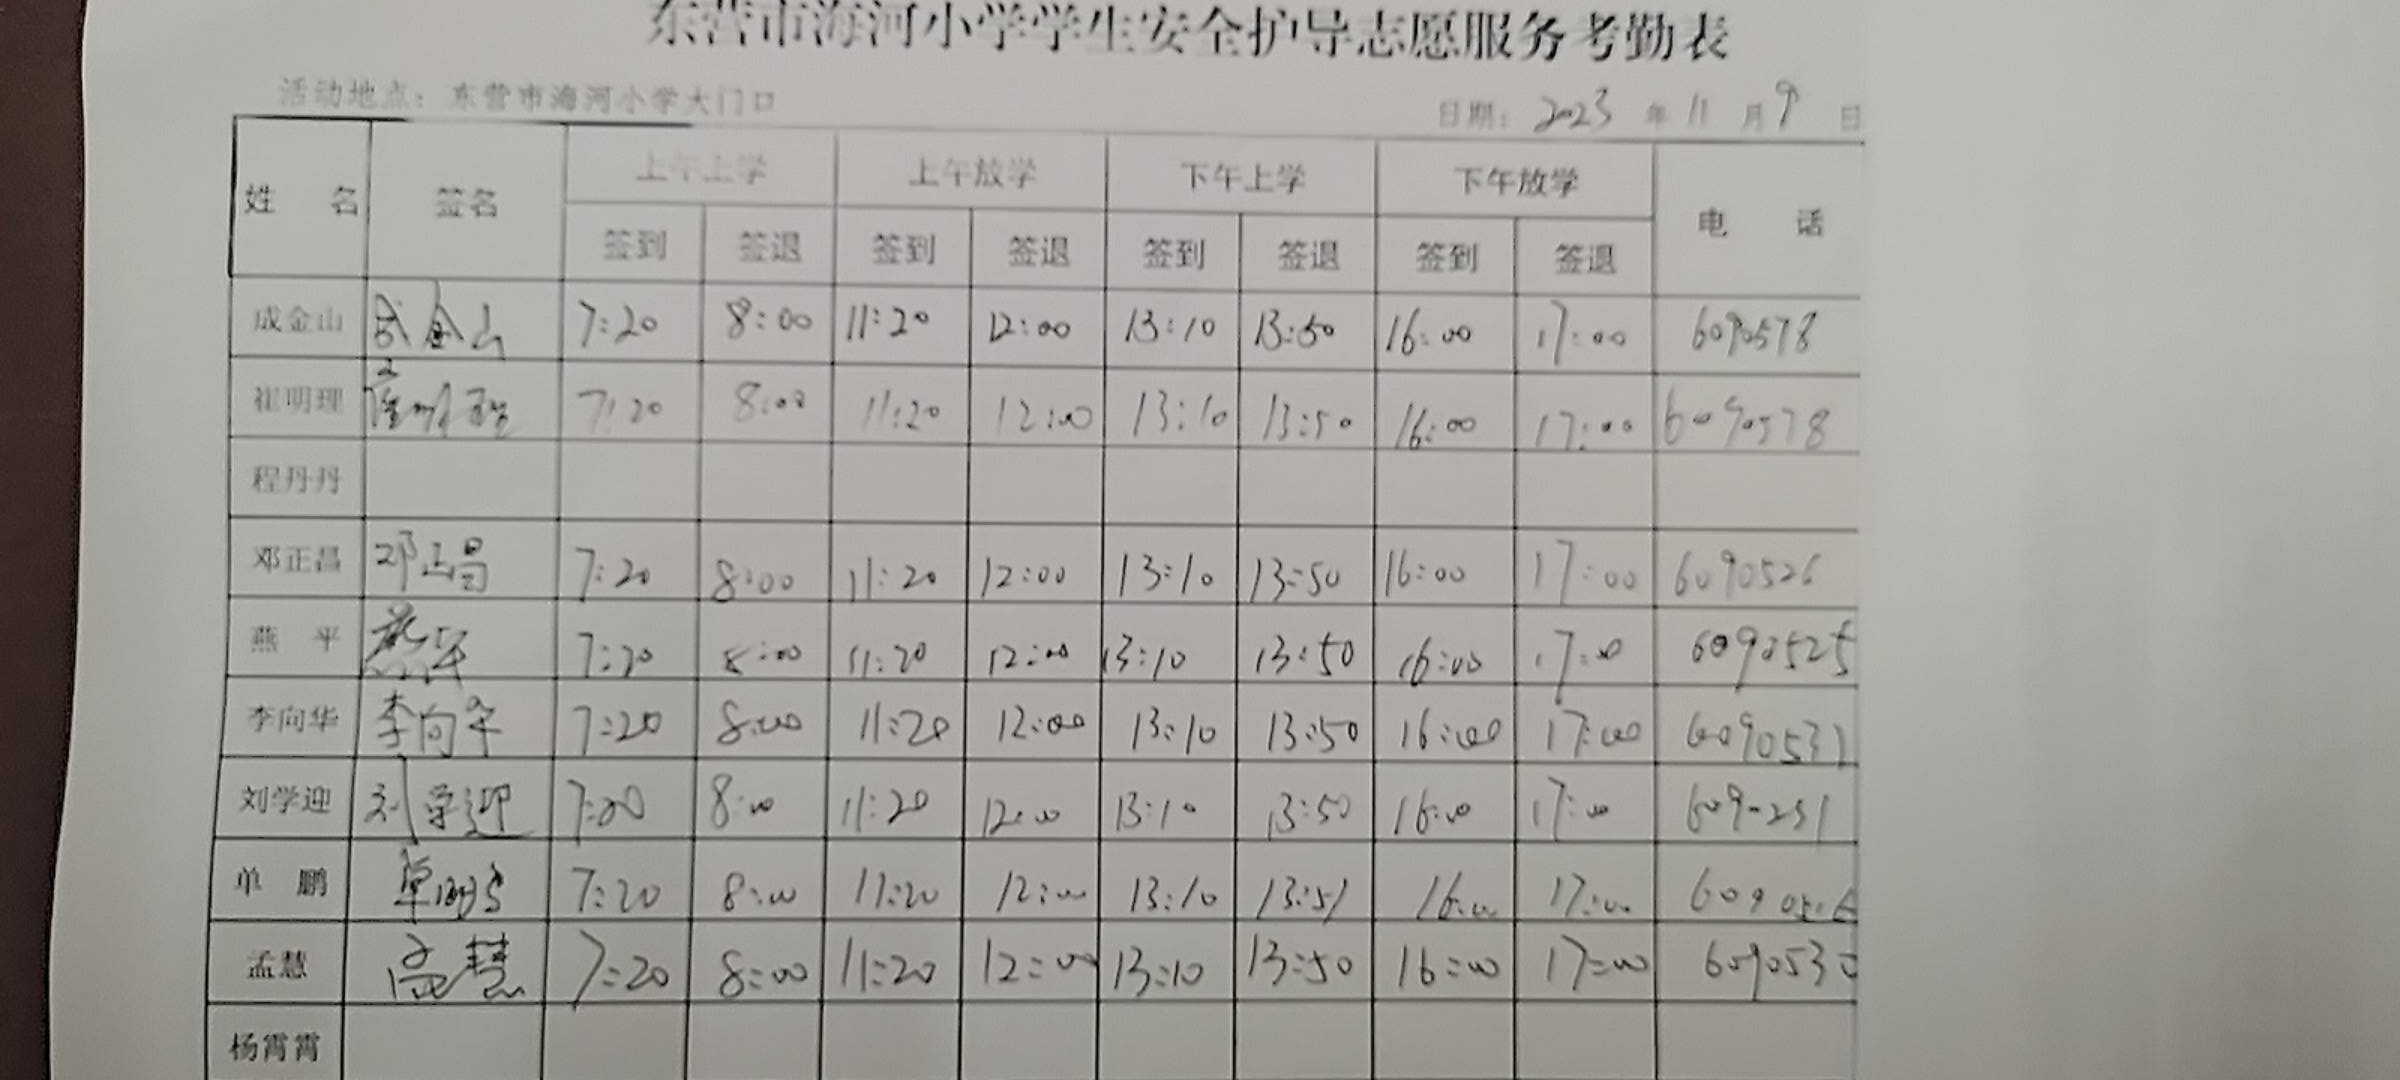 东营市海河小学学生安全护导志愿服务考勤表
活动地点：东营市海河小学大门口 日期：2023 年 11 月 9 日
姓 名 签名 上午上学 上午放学 下午上学 下午放学 电 话
签到 签退 签到 签退 签到 签退 签到 签退
成金山 成金山 7:20 8:00 11:20 12:00 13:10 13:50 16:00 17:00 6090578
崔明理 崔明理 7:20 8:00 11:20 12:00 13:10 13:50 16:00 17:00 6090578
程丹丹
邓正昌 邓正昌 7:20 8:00 11:20 12:00 13:10 13:50 16:00 17:00 6090526
燕 平 燕平 7:20 8:00 11:20 12:00 13:10 13:50 16:00 17:00 6090525
李向华 李向华 7:20 8:00 11:20 12:00 13:10 13:50 16:00 17:00
刘学迎 刘学迎 7:20 8:00 11:20 12:00 13:10 13:50 16:00 17:00
单 鹏 单鹏 7:20 8:00 11:20 12:00 13:10 13:51 16:00 17:00
孟慧 孟慧 7:20 8:00 11:20 12:00 13:10 13:50 16:00 17:00 6090530
杨霄霄